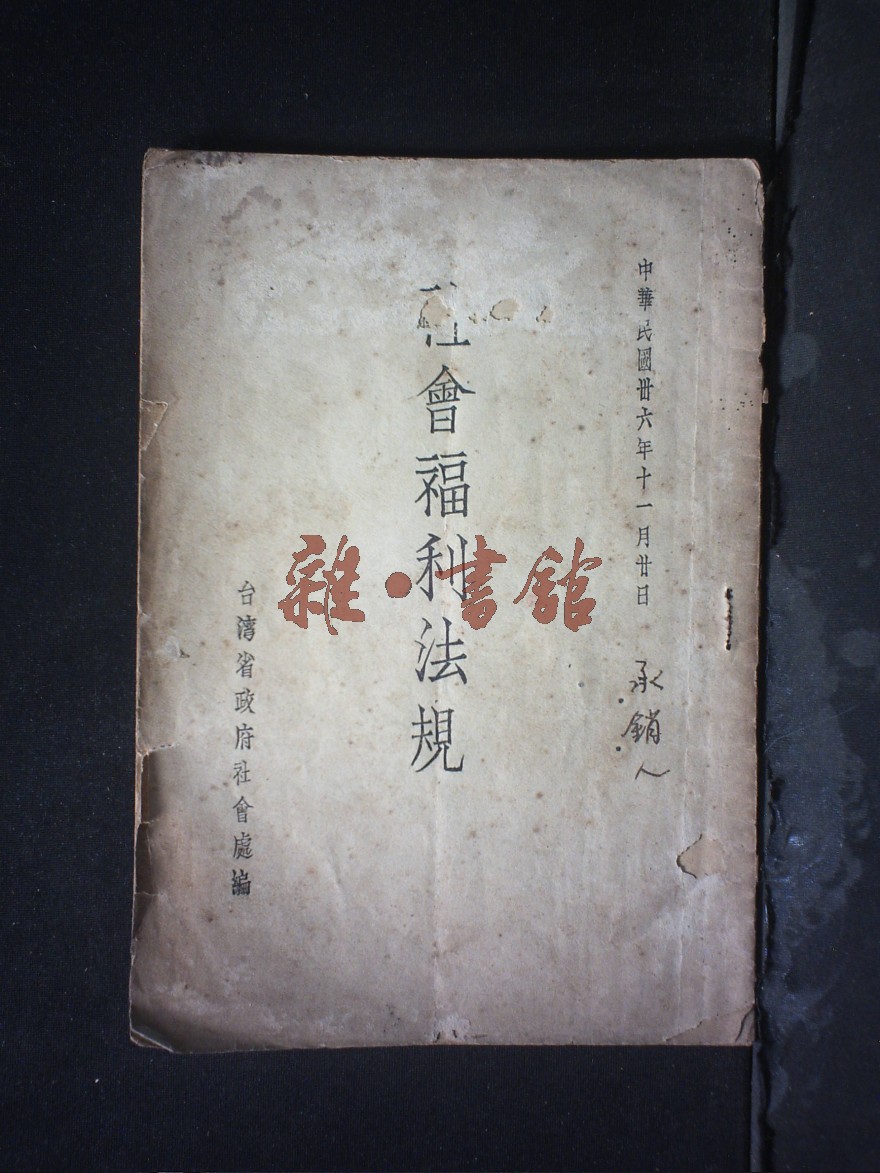 中華民國卅六年十一月廿日
承銷人
社會福利法規
台湾省政府社會處編
雜·書館